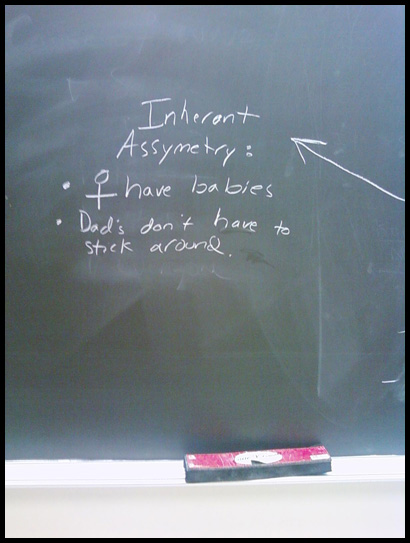 Inherant
Assymetry:
• ♀ have babies
• Dad's don't have to
stick around.